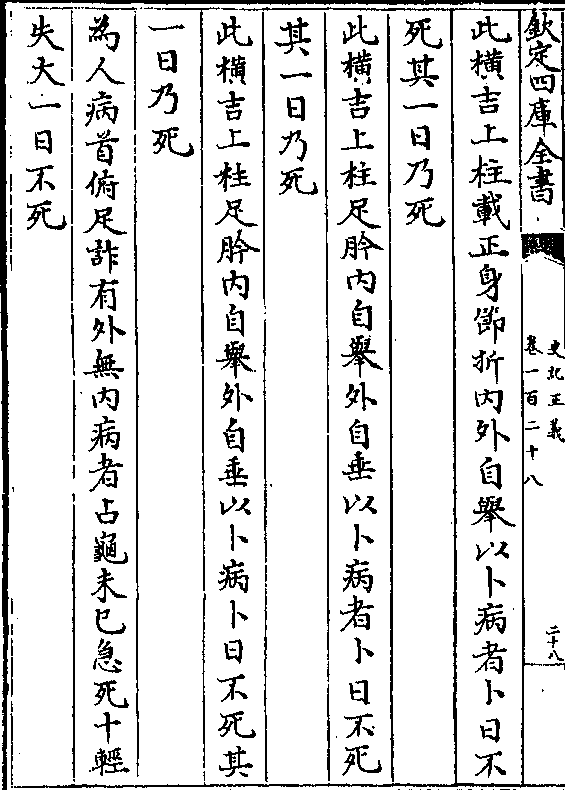 欽定四庫全書
史記正義
卷一百二十八
二十八
此橫吉上柱載正身節折內外自舉以卜病者卜日不
死其一日乃死
此橫吉上柱足肣內自舉外自垂以卜病者卜日不死
其一日乃死
此橫吉上柱足肣內自舉外自垂以卜病卜日不死其
一日乃死
為人病首俯足詐有外無內病者占龜未已急死卜輕
失大一日不死